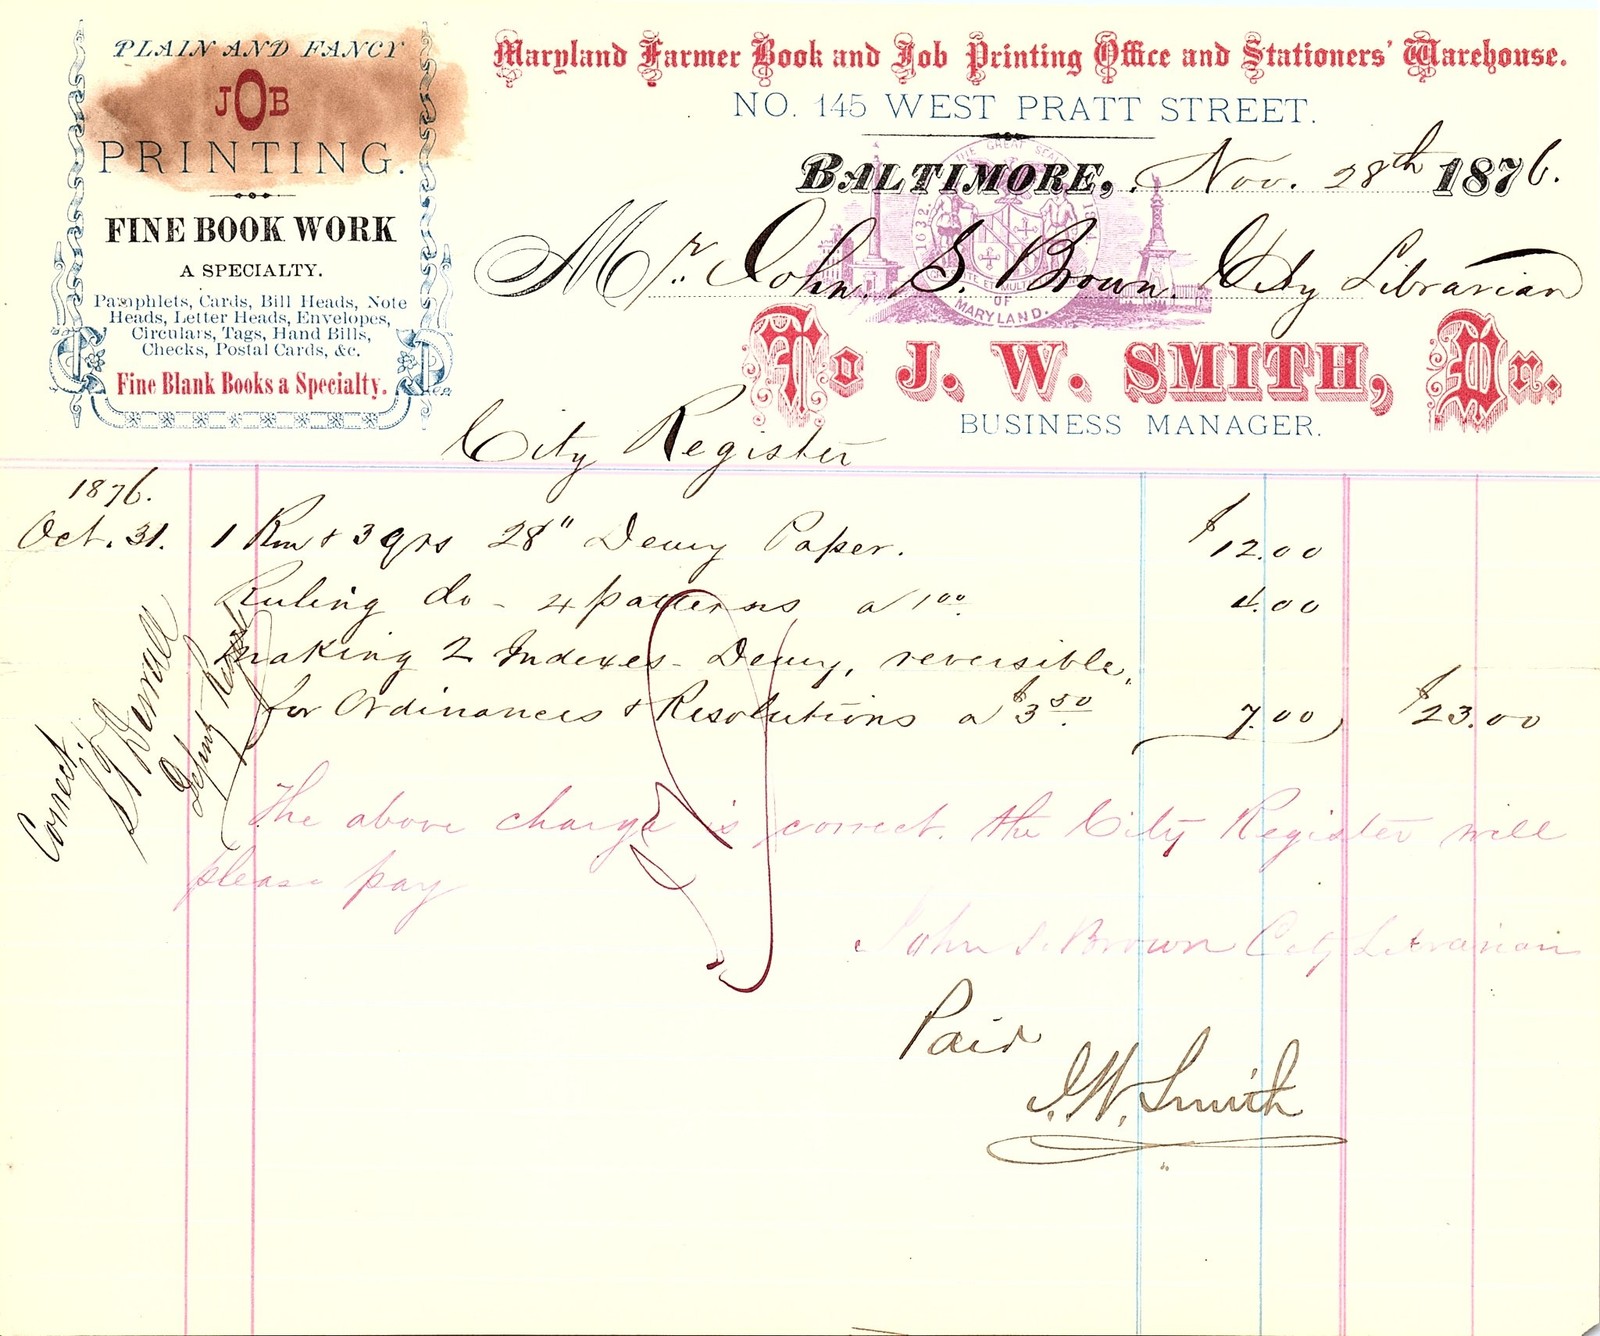 PLAIN AND FANCY
JOB
PRINTING.
FINE BOOK WORK
A SPECIALTY.
Pamphlets, Cards, Bill Heads, Note
Heads, Letter Heads, Envelopes,
Circulars, Tags, Hand Bills,
Checks, Postal Cards, &c.
Fine Blank Books a Specialty.
Maryland Farmer Book and Job Printing Office and Stationers' Warehouse.
NO. 145 WEST PRATT STREET.
BALTIMORE, Nov. 28th 1876.
THE GREAT SEAL
1632.
OF
MARYLAND.
Mr. John. S. Brown. City Librarian
To J. W. SMITH, Dr.
BUSINESS MANAGER.
City Register
1876.
Oct. 31. 1 Rm & 3 qrs 28" Demy Paper. $12.00
Ruling do - 4 patterns a 1 00 4.00
making 2 Indexes - Demy, reversible,
for Ordinances & Resolutions a $3 50. 7.00 $23.00
Correct.
Deputy Regist
The above charge is correct. the City Register will
please pay
John S. Brown City Librarian
Paid
J. W. Smith